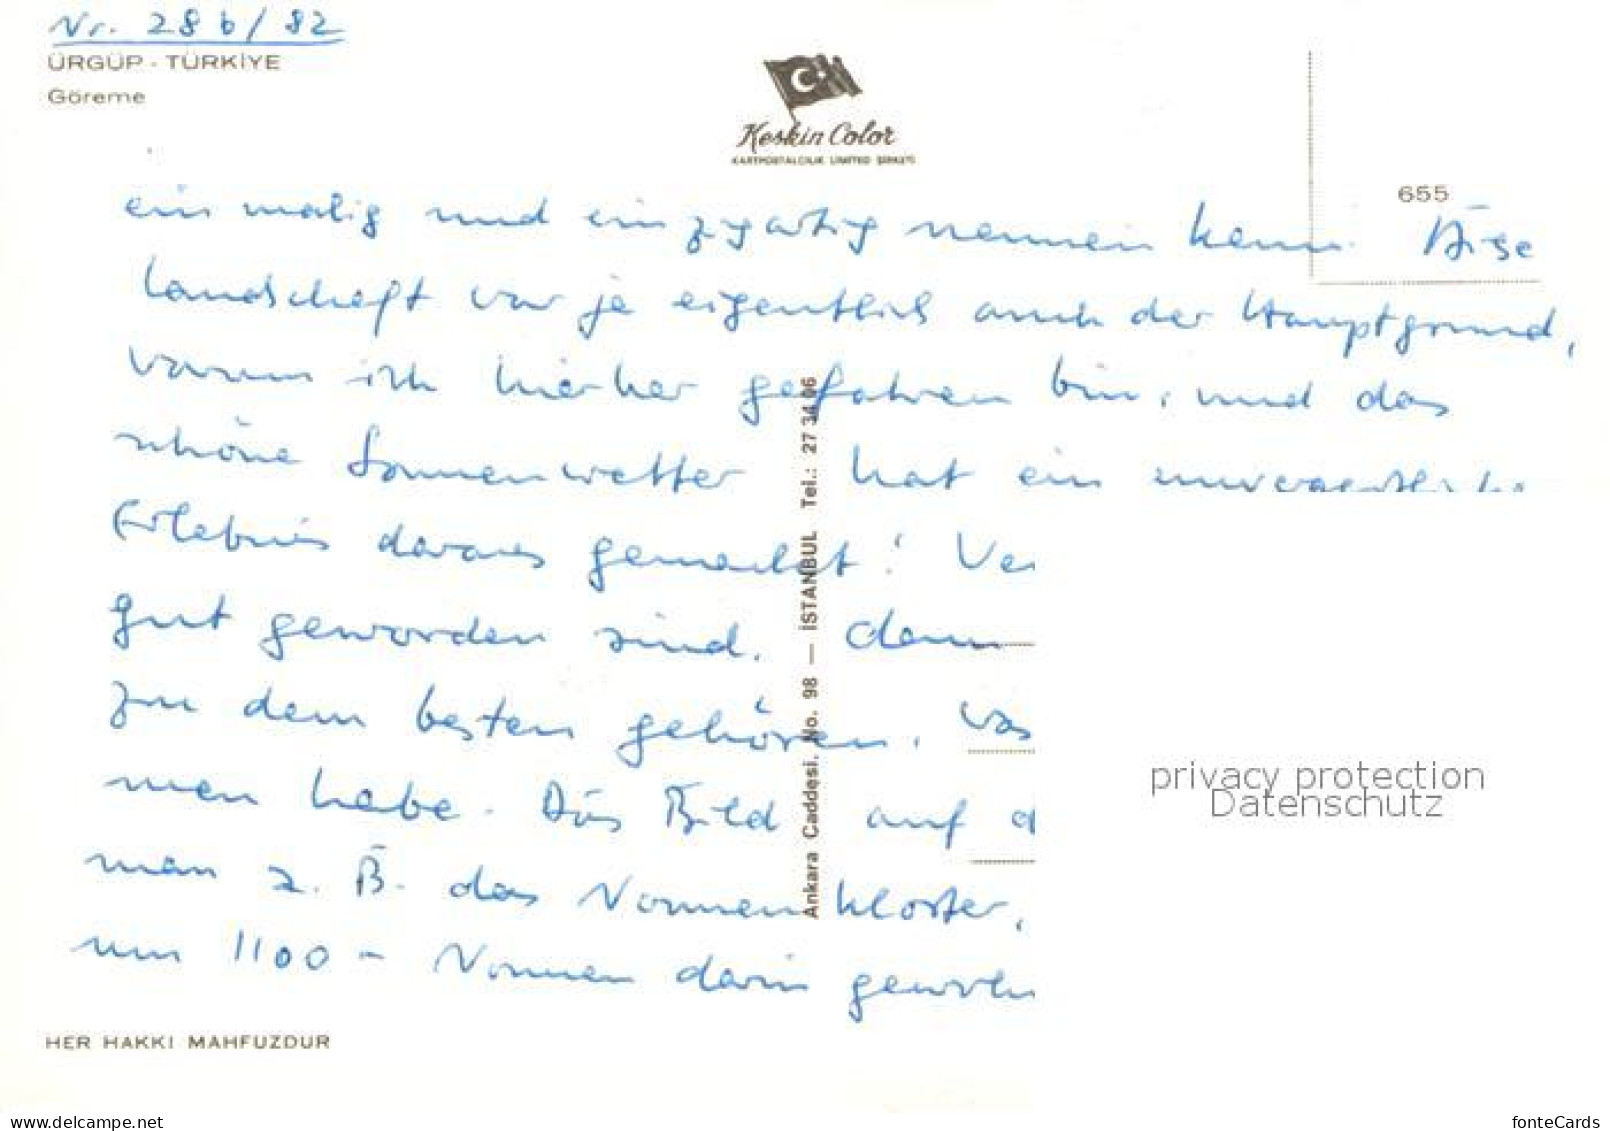 Nr. 28 b / 82
ÜRGÜP - TÜRKİYE
Göreme
Keskin Color
KARTPOSTALCILIK LIMITED ŞİRKETİ
655
ein malig und einzigartig nennen kann. Diese
Landschaft war ja eigentlich auch der Hauptgrund,
warum ich hierher gefahren bin, und das
schöne Sonnenwetter hat ein unvergessliches
Erlebnis daraus gemacht! Ve
gut geworden sind, dann
zu dem besten gehören, was
men habe. Das Bild auf d
man z. B. das Nonnenkloster,
um 1100 - Nonnen darin gewohn
Ankara Caddesi, No. 98 — İSTANBUL Tel.: 27 34 06
HER HAKKI MAHFUZDUR
privacy protection
Datenschutz
www.delcampe.net
fonteCards